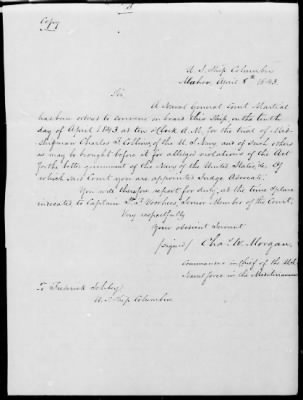 Copy
U. S. Ship Columbia
Mahon, April 8th 1843.
Sir
A Naval General Court Martial
has been ordered to convene on board this Ship, on the tenth
day of April 1843 at ten o'Clock A.M. for the trial of Mid-
shipman Charles T. Collins, of the U. S. Navy and of such others
as may be brought before it for alleged violations of the Act
for the better government of the Navy of the United States, &c. Of
which said Court you are appointed Judge Advocate.
You will therefore report for duty, at the time & place
indicated, to Captain P. F. Voorhees, Senior Member of the Court.
Very respectfully
Your obedient Servant
(signed) Chas W. Morgan,
Commander in Chief of the U.S.
Naval force in the Mediterranean
To Frederick
U. S. Ship Columbia